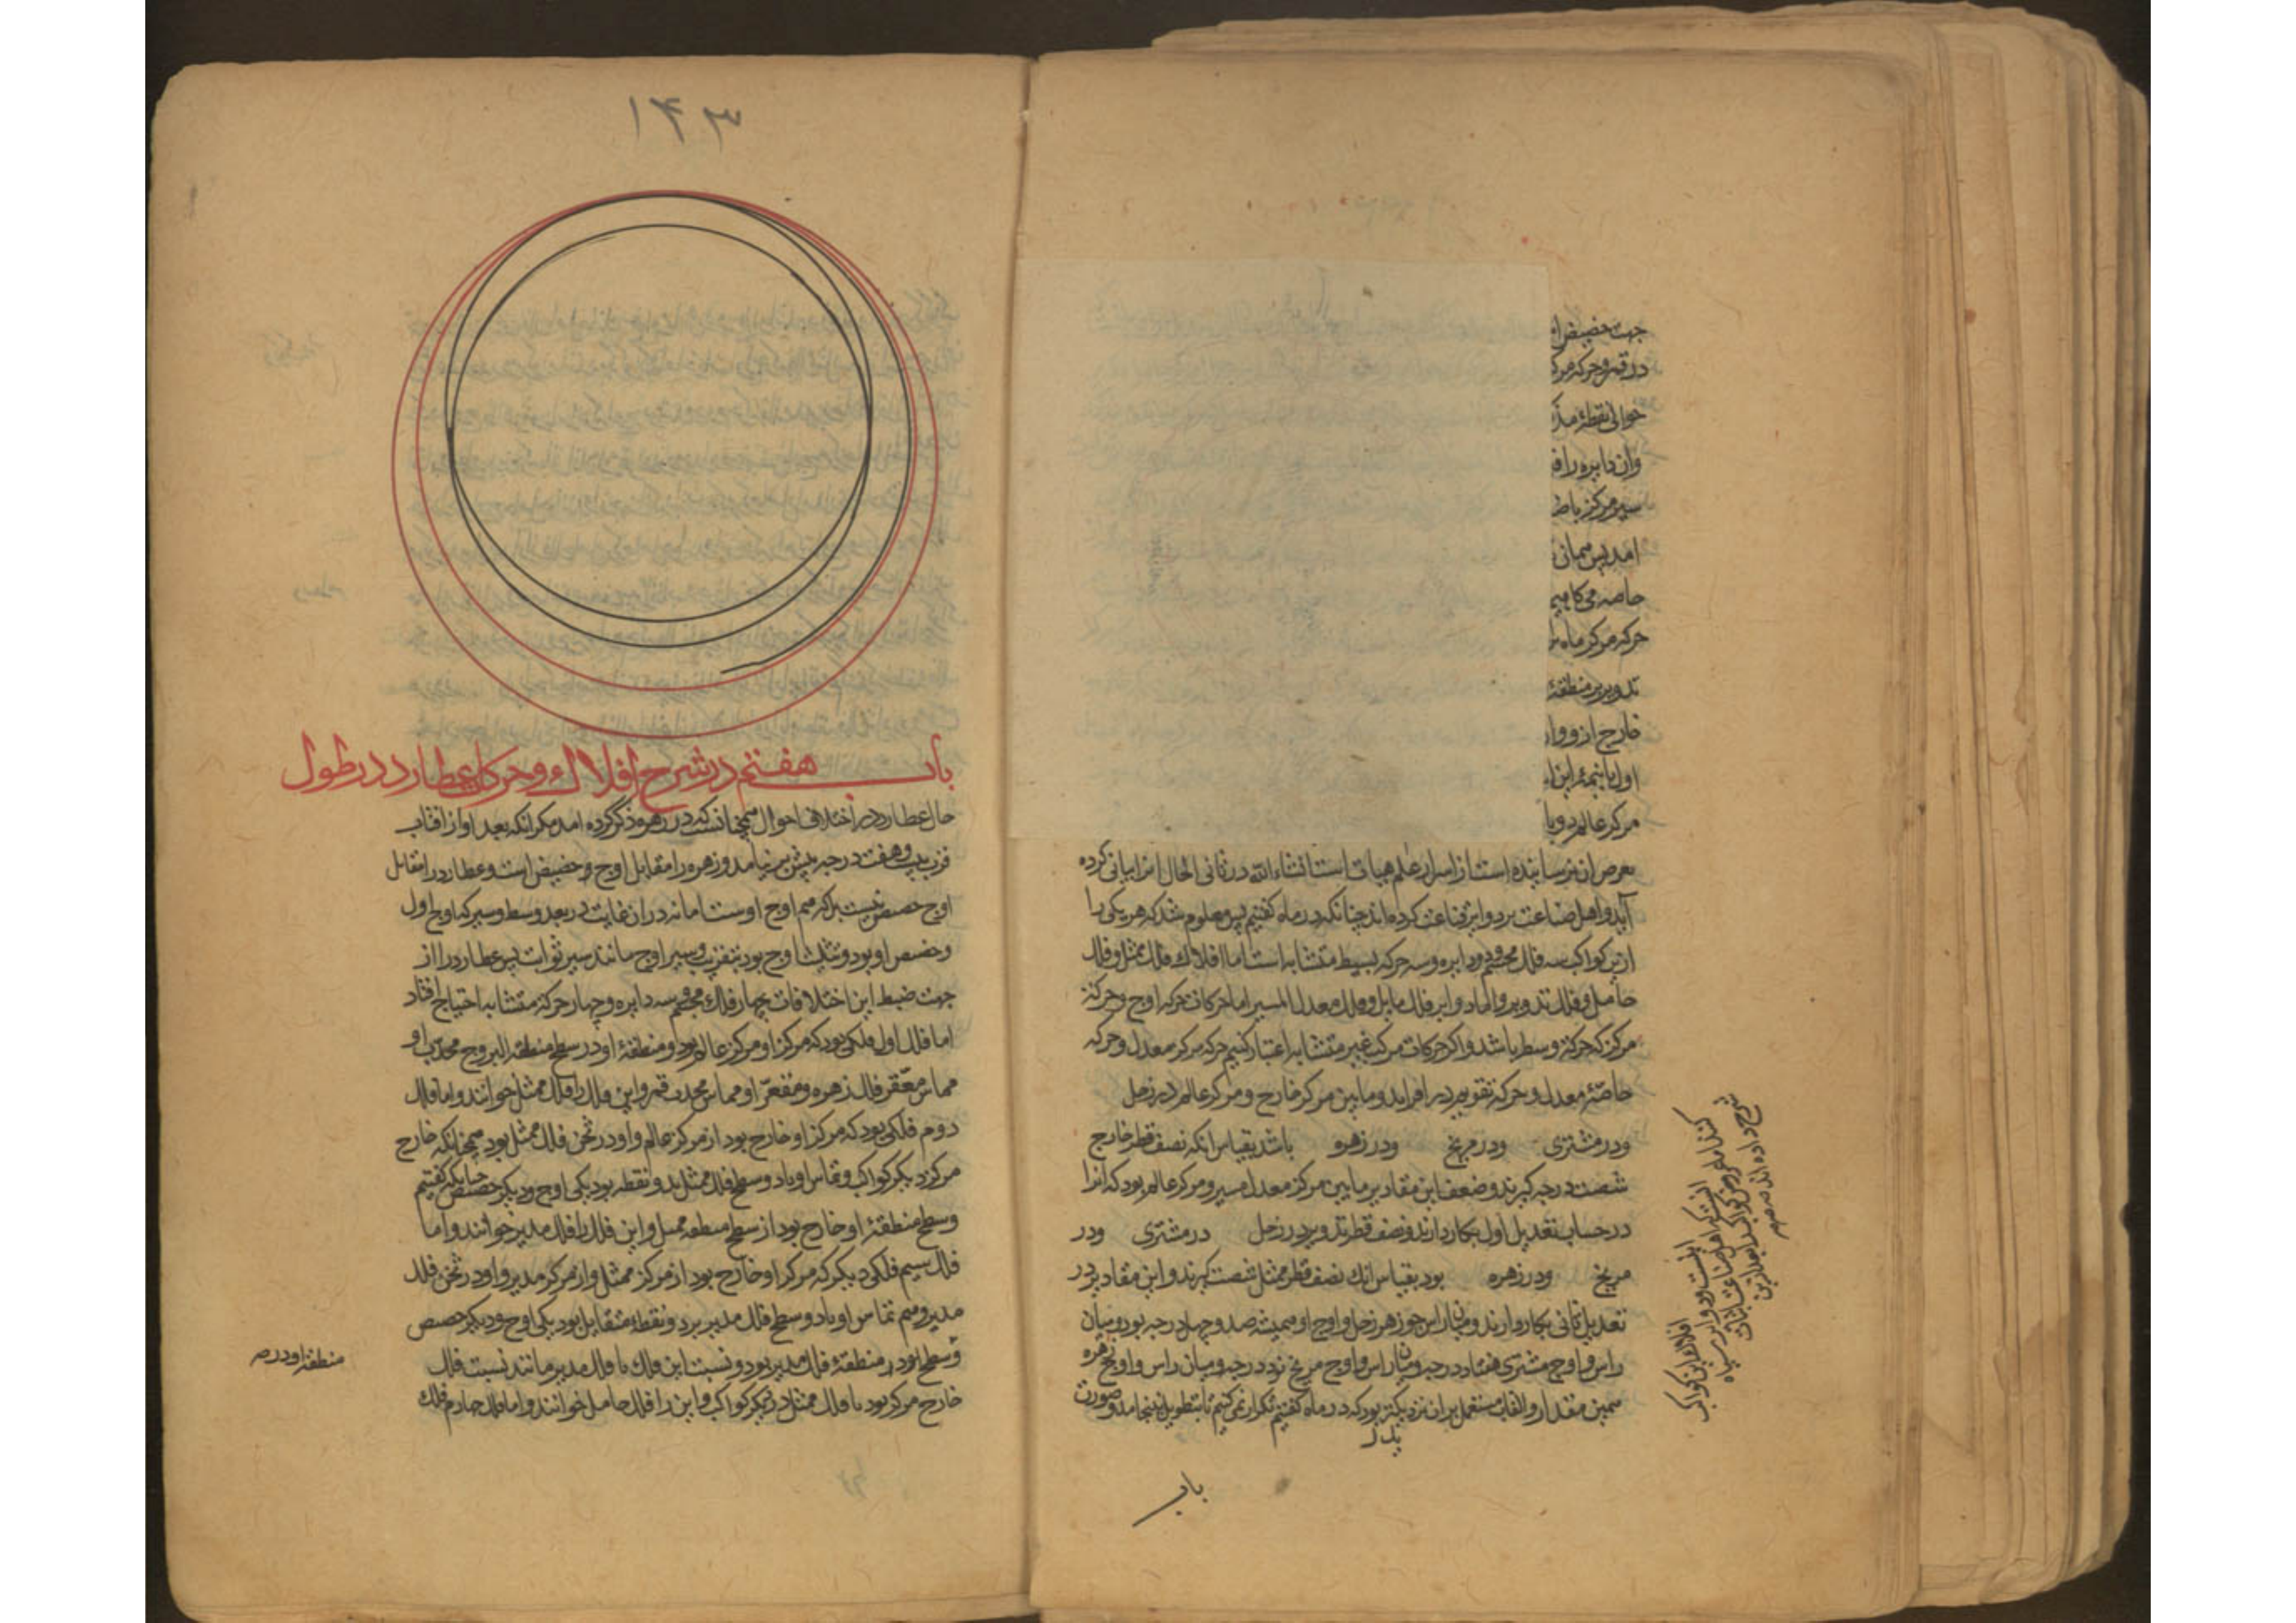 جهت حضیض ا
در قمر و حرکه مرک
حوالی نقطهٔ مذ
وان دایره را ف
سیر مرکز باط
امد پس همان
خاصه می‌کاهیم
حرکه مرکز ماه
تدویر بر منطقهٔ
خارج از و وا
اول یا نیمهٔ این
مرکز عالم دو با
بعرض آن نرسانیده است از اسرار علم هیات است انشاءالله در ثانی الحال اشارتی کرده
آید و اهل صناعت برد و ایر قناعت کرده‌اند چنانکه در ماه گفتیم پس معلوم شد که هر یکی را
ازین کواکب سه فلک مجسم و دو دایره و سه حرکه بسیط متشابه است اما افلاک فلک ممثل و فلک
حامل و فلک تدویر و اما دوایر فلک مایل و فلک معدل المسیر اما حرکات حرکه اوج و حرکهٔ
مرکز که حرکهٔ وسط باشد و اگر حرکات مرکب غیر متشابه اعتبار کنیم حرکه مرکز معدل و حرکه
خاصهٔ معدل و حرکهٔ تقویم در افزاید و مابین مرکز خارج و مرکز عالم در زحل
و در مشتری و در مریخ و در زهره باشد بقیاس انکه نصف قطر خارج
شصت درجه گیرند و ضعف این مقادیر مابین مرکز معدل مسیر و مرکز عالم بود که انرا
در حساب تعدیل اول بکار دارند و نصف قطر تدویر در زحل در مشتری و در
مریخ و در زهره بود بقیاس انک نصف قطر ممثل شصت گیرند و این مقادیر در
تعدیل ثانی بکار دارند و میان راس جوزهر زحل و اوج او همیشه صد و چهل درجه بود و میان
راس و اوج مشتری هفتاد درجه و میان راس و اوج مریخ نود درجه و میان راس و اوج زهره
همین مقدار و القاب مستعمل بران نزدیکتر بود که در ماه گفتیم تکرار نمی‌کنیم تا بتطویل نینجامد و صورت
باب
افلاک این کواکب
اینست و دوایر سیاه
شرح داده اند
۱۴۳
باب هفتم در شرح افلاک و حرکات عطارد در طول
حال عطارد در اختلاف احوال همچنانست که در زهره ذکر کرده امد مگر انکه بعد او از افتاب
قرب بیست و هفت درجه بیش بر نیامد و زهره را مقابل اوج حضیض است و عطارد را مقابل
اوج حضیض نیست بلکه هم اوج اوست اما نه در ان غایت در بعد و سط و سیر که اوج اول
و حضیض او بود و تثلیث اوج بود بتقریب و سیر اوج مانند سیر ثوابت پس عطارد را از
جهت ضبط این اختلافات بچهار فلک مجسم سه دایره و چهار حرکهٔ متشابه احتیاج افتاد
اما فلک اول فلکی بود که مرکز او مرکز عالم بود و منطقهٔ او در سطح منطقه البروج محدب او
مماس مقعر فلک زهره و مقعر او مماس محدب قمر و این فلک را فلک ممثل خوانند و اما فلک
دوم فلکی بود که مرکز او خارج بود از مرکز عالم و او در ثخن فلک ممثل بود همچنانکه خارج
مرکز دیگر کواکب و تماس او با دو سطح فلک ممثل بدو نقطه بود یکی اوج و دیگر حضیض چنانکه گفتیم
و سطح منطقهٔ او خارج بود از سطح منطقه ممثل و این فلک را فلک مدیر خوانند و اما
فلک سیم فلکی دیگر که مرکز او خارج بود از مرکز ممثل و از مرکز مدیر و او در ثخن فلک
مدیر و هم تماس او با دو سطح فلک مدیر بر دو نقطهٔ متقابل بود یکی اوج و دیگر حضیض
و سطح بود در منطقهٔ فلک مدیر بود و نسبت این فلک با فلک مدیر مانند نسبت فلک
منطقه او در
خارج مرکز بود با فلک ممثل در دیگر کواکب و این را فلک حامل خوانند و اما فلک چهارم فلک